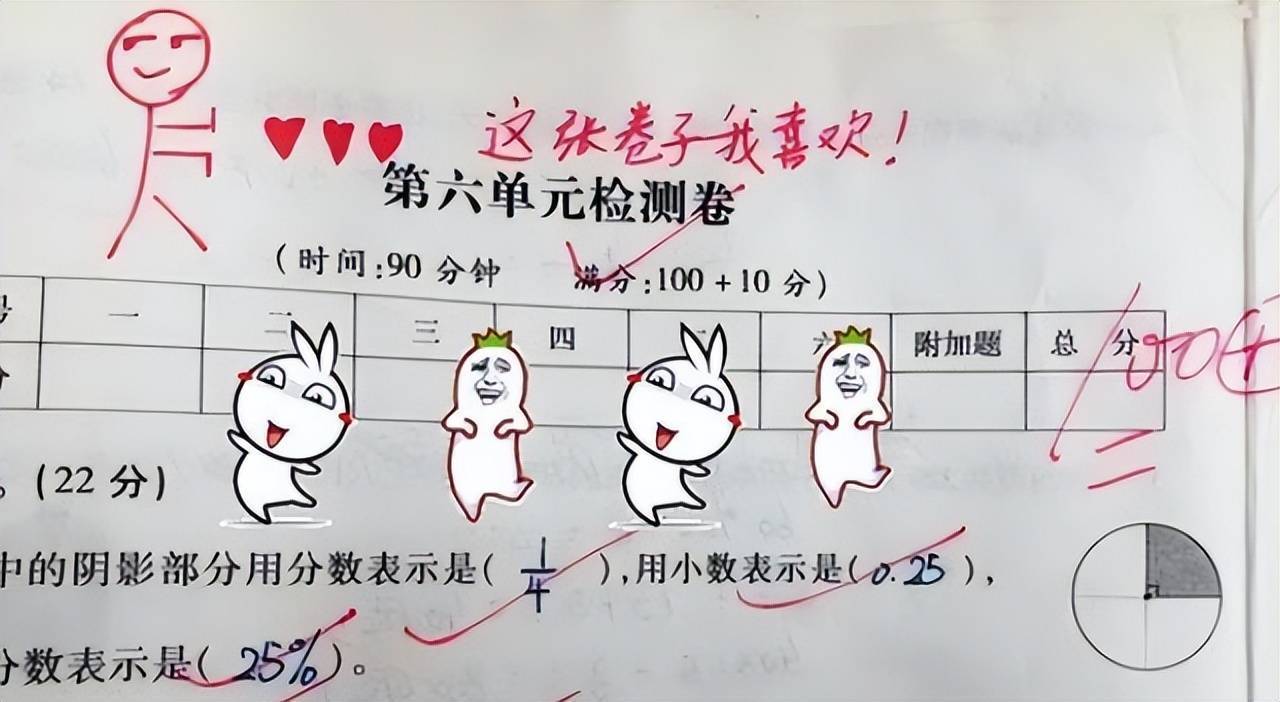 这张卷子我喜欢!
第六单元检测卷
(时间:90 分钟 满分:100+10 分)
一 二 三 四 六 附加题 总 分
100+
。(22 分)
中的阴影部分用分数表示是( 1/4 ),用小数表示是( 0.25 ),
分数表示是( 25% )。